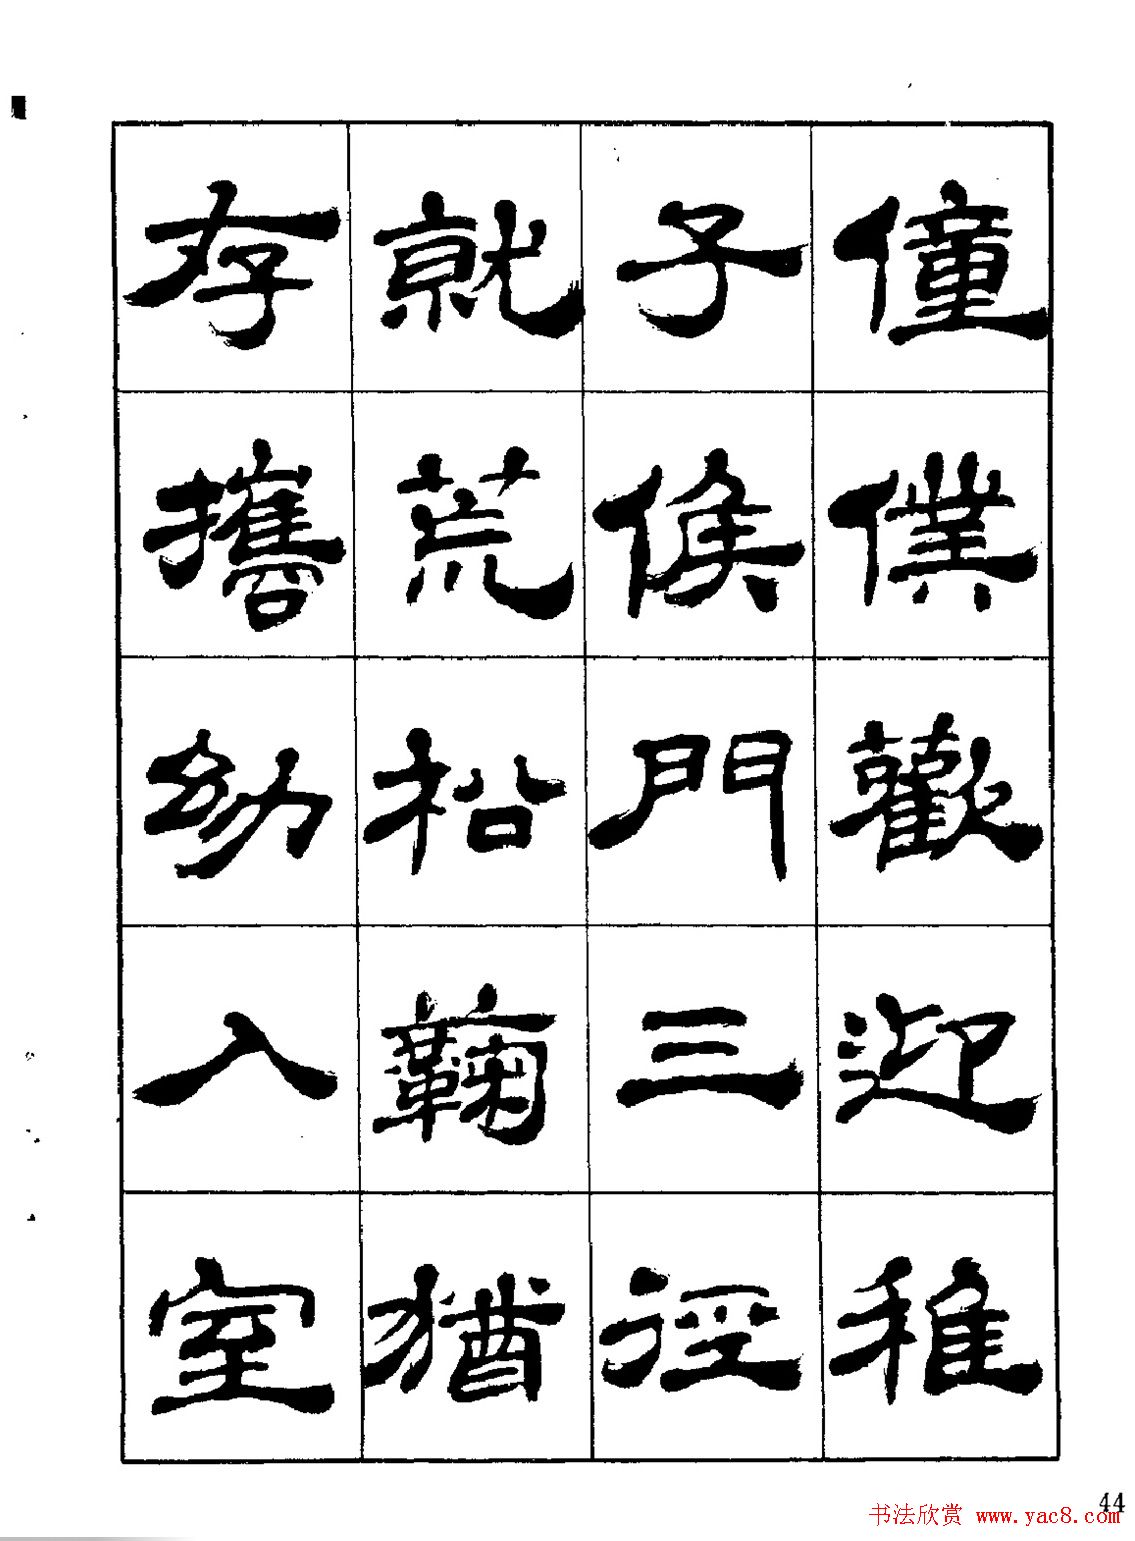 僮僕歡迎稚
子候門三徑
就荒松菊猶
存攜幼入室
44
书法欣赏 www.yac8.com